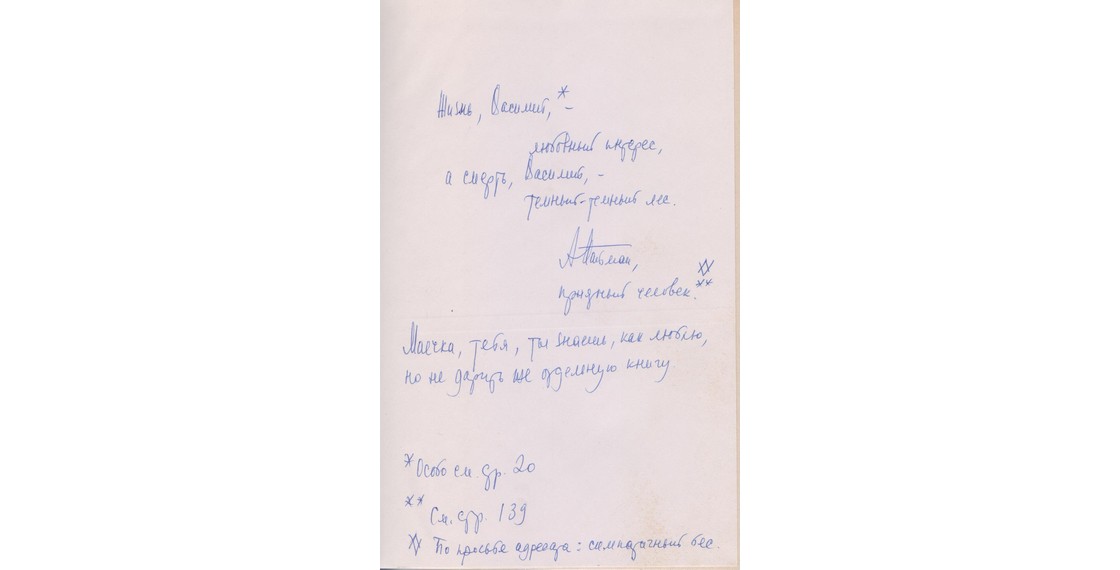 Жизнь, Василий,* –
любовный интерес,
а смерть, Василий, –
темный-темный лес.
человек.**
Маечка, тебя, ты знаешь, как люблю,
но не дарить же отдельную книгу
* Особо см. стр. 20
** См. стр. 139
По просьбе адресата: симпатичный бес.